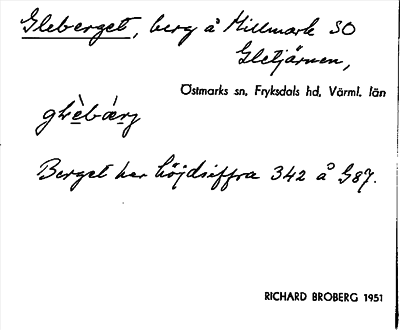 Gleberget, berg å Millmark SO
Gletjärnen,
Östmarks sn, Fryksdals hd, Värml. län
Berget har höjdsiffra 342 å G87.
RICHARD BROBERG 1951